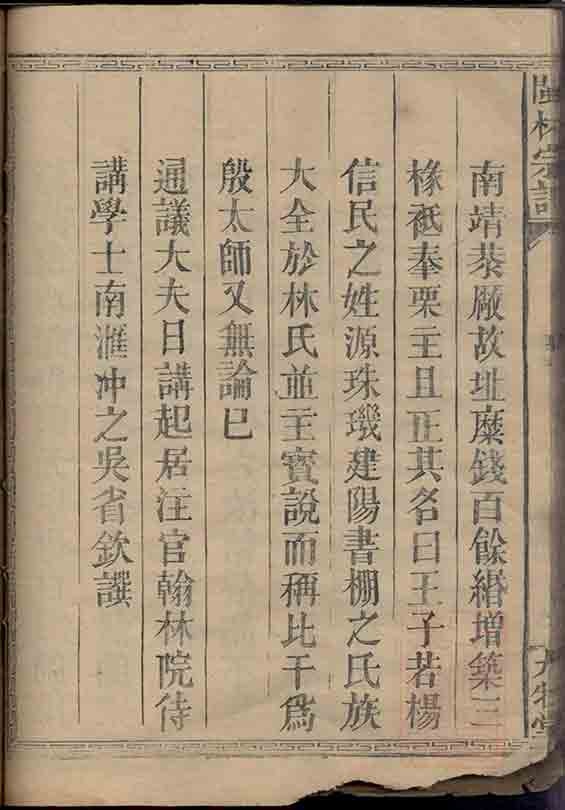 閩林宗譜
南靖㳟厰故址糜錢百餘緡增築三
椽祇奉栗主且正其名曰王子若楊
信民之姓源珠璣建陽書棚之氏族
大全於林氏並主賓說而稱比干爲
殷太師又無論已
通議大夫日講起居注官翰林院侍
講學士南滙冲之吳省欽譔